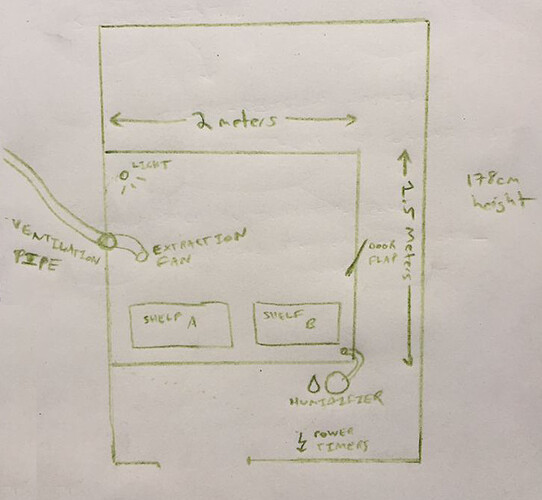 2 meters
LIGHT
178cm
height
2.5 meters
VENTILATION
PIPE
EXTRACTION
FAN
DOOR
FLAP
SHELF A
SHELF B
HUMIDIFIER
POWER
TIMERS